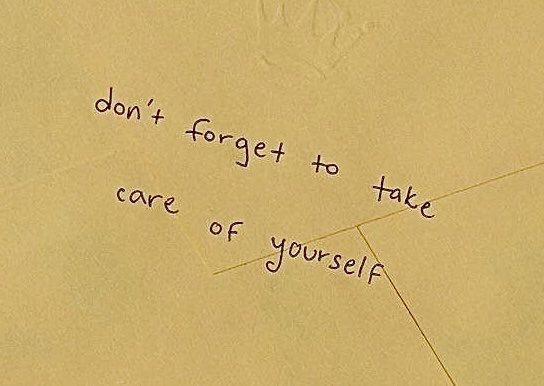 don't forget to take
care of yourself